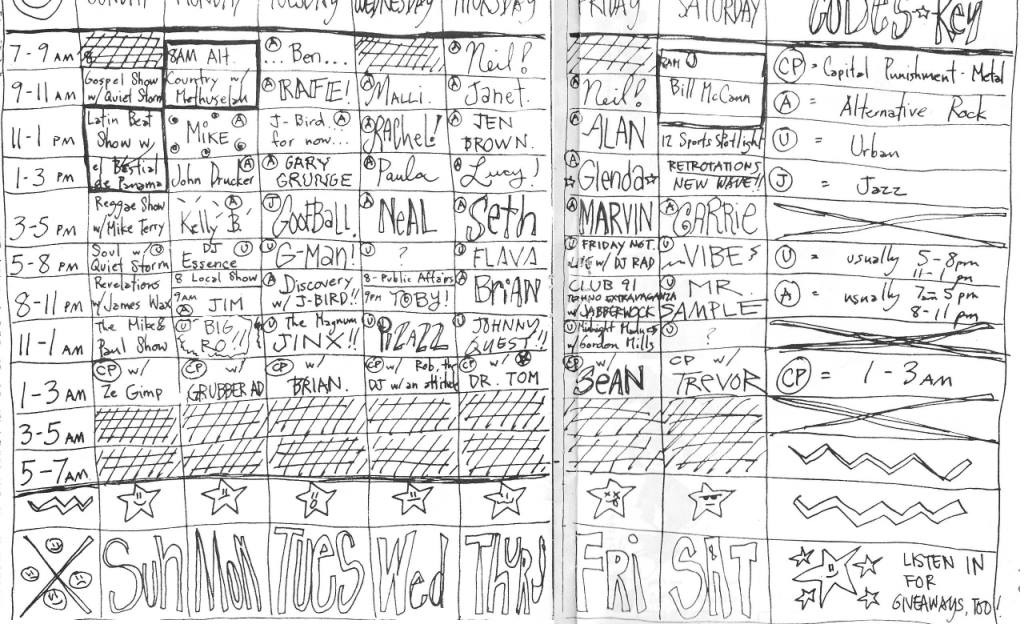 SUNDAY MONDAY TUESDAY WEDNESDAY THURSDAY FRIDAY SATURDAY CODES ☆ Key
7-9 AM 8AM Alt. A ...Ben... A Neil! 8AM U CP = Capital Punishment - Metal
9-11 AM Gospel Show w/ Quiet Storm Country w/ Methuselah A RAFE! A Malli. A Janet. A Neil! Bill McCann A = Alternative Rock
11-1 PM Latin Beat Show w/ MIKE A J-Bird A for now... A RACHEL! A JEN BROWN. A ALAN 12 Sports Spotlight U = Urban
1-3 PM el Bestial de Panama John Drucker A A GARY GRUNGE A Paula A Lucy! A Glenda RETROTATIONS NEW WAVE!! J = Jazz
3-5 PM Reggae Show w/ Mike Terry A Kelly B. J GootBALL. A NeAL A Seth A MARVIN A CARRIE
5-8 PM Soul w/ U Quiet Storm DJ U Essence U G-Man! U ? U FLAVA U FRIDAY NGT. w/ DJ RAD U VIBES U = usually 5-8pm 11-1 pm
8-11 PM Revelations w/ James Wax 8 Local Show 9AM A JIM A Discovery w/ J-BIRD!! 8-Public Affairs 9PM TOBY! A BRiAN CLUB 91 TEKHNO EXTRAVAGANZA w/ JABBERWOCK U MR. SAMPLE A = usually 7am-5pm 8-11 pm
11-1 AM The Mike & Paul Show U BIG RO!! U The Magnum JINX!! U PIZAZZ U JOHNNY QUEST!! U Midnight Madness w/ Gordon Mills U ?
1-3 AM CP w/ Ze Gimp CP w/ GRUBBER AD CP w/ BRIAN. CP w/ Rob, the DJ w/ an attitude CP w/ DR. TOM CP w/ SEAN CP w/ TREVOR CP = 1-3 AM
3-5 AM
5-7 AM
Sun Mon Tues Wed Thurs FRi SAT LISTEN IN
FOR
GIVEAWAYS, TOO!